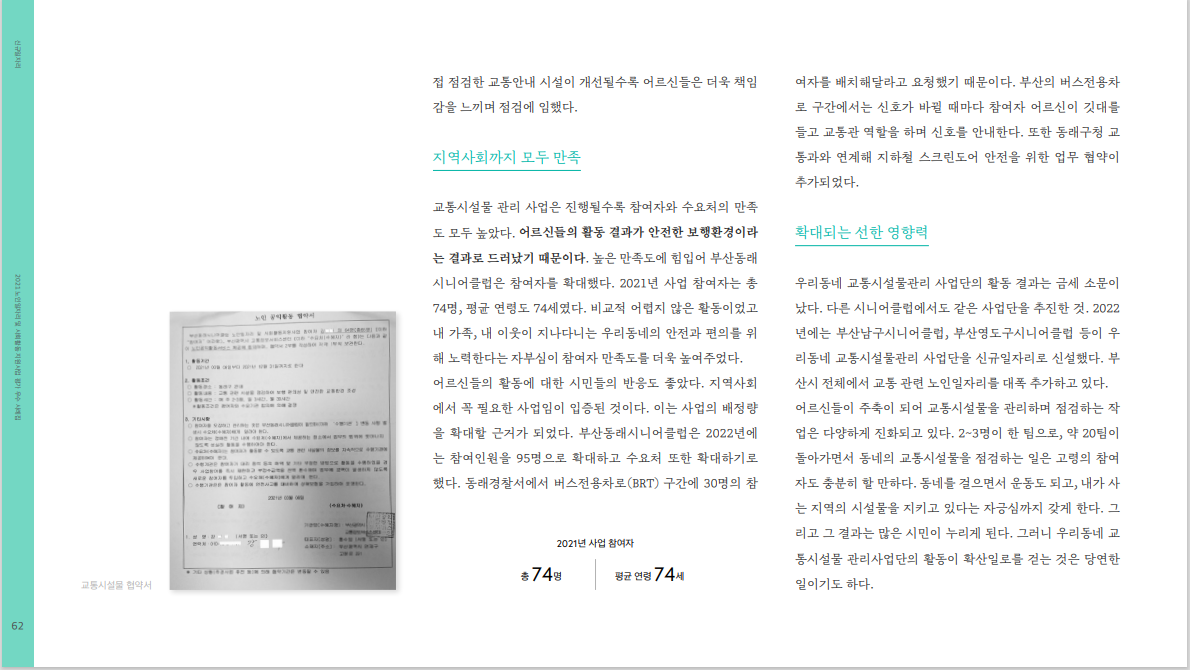 신규일자리
2021 노인일자리 및 사회활동 지원사업 평가 우수 사례집
62
교통시설물 협약서
노인 공익활동 협약서
1. 활동기간
2. 활동조건
3. 기타사항
2021년 03월 04일
(수요처·수혜자)
점 점검한 교통안내 시설이 개선될수록 어르신들은 더욱 책임
감을 느끼며 점검에 임했다.
지역사회까지 모두 만족
교통시설물 관리 사업은 진행될수록 참여자와 수요처의 만족
도 모두 높았다. 어르신들의 활동 결과가 안전한 보행환경이라
는 결과로 드러났기 때문이다. 높은 만족도에 힘입어 부산동래
시니어클럽은 참여자를 확대했다. 2021년 사업 참여자는 총
74명, 평균 연령도 74세였다. 비교적 어렵지 않은 활동이었고
내 가족, 내 이웃이 지나다니는 우리동네의 안전과 편의를 위
해 노력한다는 자부심이 참여자 만족도를 더욱 높여주었다.
어르신들의 활동에 대한 시민들의 반응도 좋았다. 지역사회
에서 꼭 필요한 사업임이 입증된 것이다. 이는 사업의 배정량
을 확대할 근거가 되었다. 부산동래시니어클럽은 2022년에
는 참여인원을 95명으로 확대하고 수요처 또한 확대하기로
했다. 동래경찰서에서 버스전용차로(BRT) 구간에 30명의 참
2021년 사업 참여자
총 74명
평균 연령 74세
여자를 배치해달라고 요청했기 때문이다. 부산의 버스전용차
로 구간에서는 신호가 바뀔 때마다 참여자 어르신이 깃대를
들고 교통관 역할을 하며 신호를 안내한다. 또한 동래구청 교
통과와 연계해 지하철 스크린도어 안전을 위한 업무 협약이
추가되었다.
확대되는 선한 영향력
우리동네 교통시설물관리 사업단의 활동 결과는 금세 소문이
났다. 다른 시니어클럽에서도 같은 사업단을 추진한 것. 2022
년에는 부산남구시니어클럽, 부산영도구시니어클럽 등이 우
리동네 교통시설물관리 사업단을 신규일자리로 신설했다. 부
산시 전체에서 교통 관련 노인일자리를 대폭 추가하고 있다.
어르신들이 주축이 되어 교통시설물을 관리하며 점검하는 작
업은 다양하게 진화되고 있다. 2~3명이 한 팀으로, 약 20팀이
돌아가면서 동네의 교통시설물을 점검하는 일은 고령의 참여
자도 충분히 할 만하다. 동네를 걸으면서 운동도 되고, 내가 사
는 지역의 시설물을 지키고 있다는 자긍심까지 갖게 한다. 그
리고 그 결과는 많은 시민이 누리게 된다. 그러니 우리동네 교
통시설물 관리사업단의 활동이 확산일로를 걷는 것은 당연한
일이기도 하다.